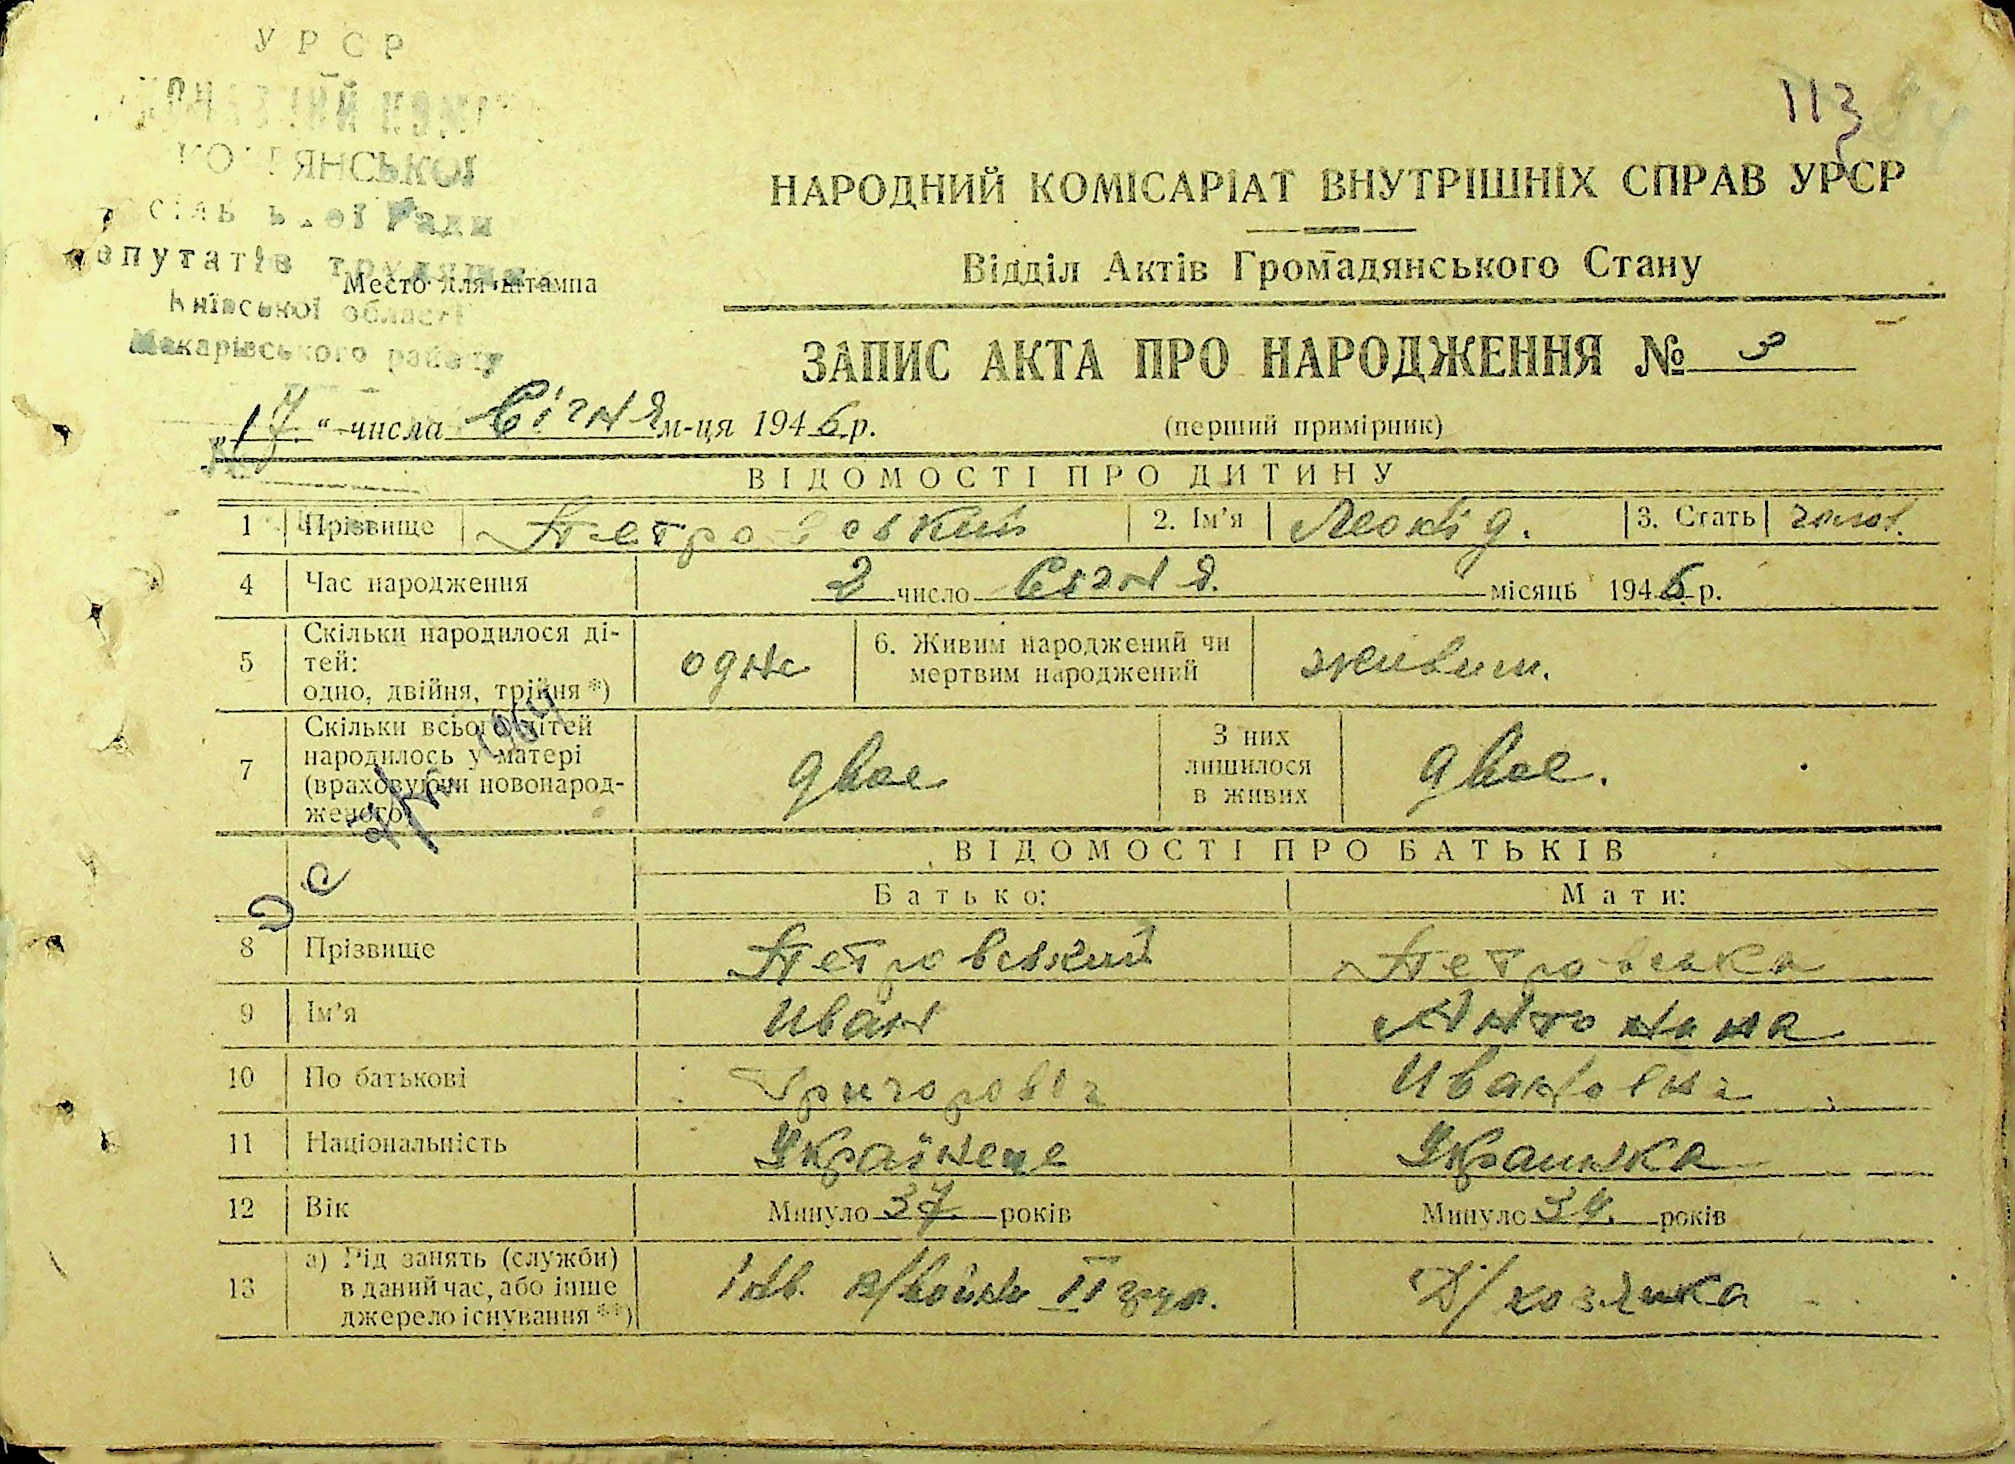 УРСР
ЯНСЬКОЇ
Ради
Київської області
Макарівського району
Место для штампа
113
НАРОДНИЙ КОМІСАРІАТ ВНУТРІШНІХ СПРАВ УРСР
Відділ Актів Громадянського Стану
ЗАПИС АКТА ПРО НАРОДЖЕННЯ № 3
(перший примірник)
„17“ числа Січня м-ця 1946 р.
ВІДОМОСТІ ПРО ДИТИНУ
1 Прізвище Петровський 2. Ім'я Леонід. 3. Стать чолов.
4 Час народження 2 число Січня. місяць 1946 р.
5 Скільки народилося ді-
тей:
одно, двійня, трійня*) одне 6. Живим народжений чи
мертвим народжений живим.
7 Скільки всього дітей
народилось у матері
(враховуючи новонарод-
женого) двое З них
лишилося
в живих двое.
ВІДОМОСТІ ПРО БАТЬКІВ
Батько: Мати:
8 Прізвище Петровський Петровська
9 Ім'я Иван Антонина
10 По батькові Григоровіч Ивановна
11 Національність Українець Украинка
12 Вік Минуло 37 років Минуло 34 років
13 а) Рід занять (служби)
в даний час, або інше
джерело існування**) Інв. в/войни II груп. Д/хозяйка